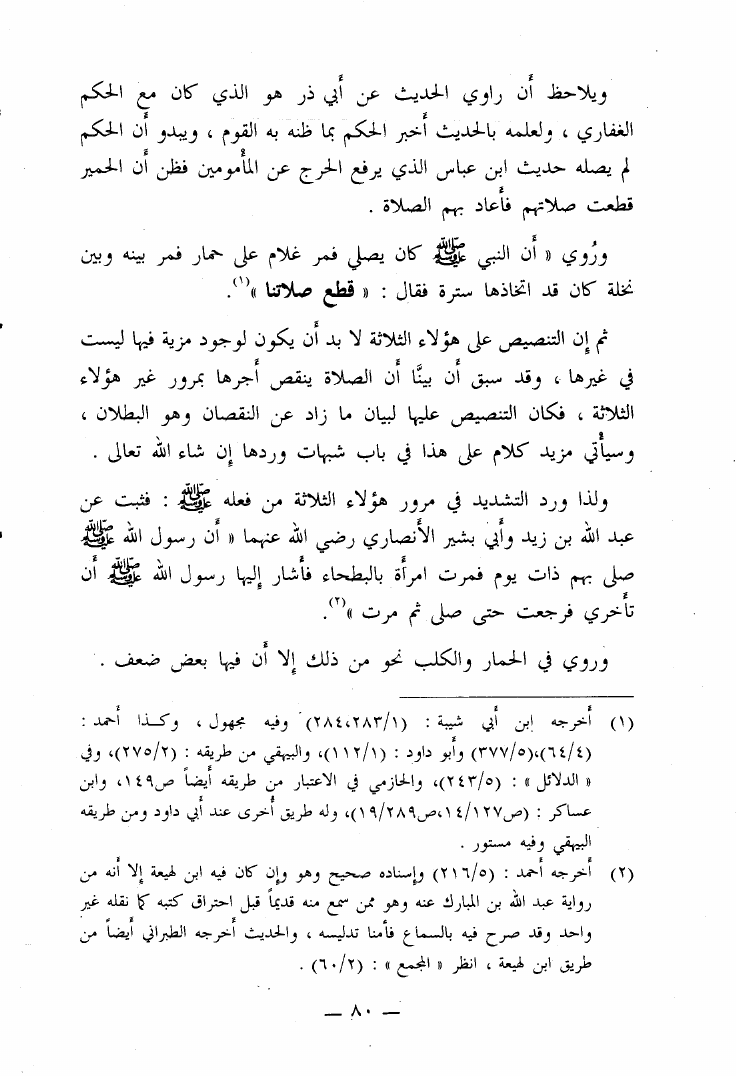 ويلاحظ أن راوي الحديث عن أبي ذر هو الذي كان مع الحكم
الغفاري ، ولعلمه بالحديث أخبر الحكم بما ظنه به القوم ، ويبدو أن الحكم
لم يصله حديث ابن عباس الذي يرفع الحرج عن المأمومين فظن أن الحمير
قطعت صلاتهم فأعاد بهم الصلاة .
ورُوي « أن النبي ﷺ كان يصلي فمر غلام على حمار فمر بينه وبين
نخلة كان قد اتخاذها سترة فقال : « قطع صلاتنا »(١).
ثم إن التنصيص على هؤلاء الثلاثة لا بد أن يكون لوجود مزية فيها ليست
في غيرها ، وقد سبق أن بينَّا أن الصلاة ينقص أجرها بمرور غير هؤلاء
الثلاثة ، فكان التنصيص عليها لبيان ما زاد عن النقصان وهو البطلان ،
وسيأتي مزيد كلام على هذا في باب شبهات وردها إن شاء الله تعالى .
ولذا ورد التشديد في مرور هؤلاء الثلاثة من فعله ﷺ : فثبت عن
عبد الله بن زيد وأبي بشير الأنصاري رضي الله عنهما « أن رسول الله ﷺ
صلى بهم ذات يوم فمرت امرأة بالبطحاء فأشار إليها رسول الله ﷺ أن
تأخري فرجعت حتى صلى ثم مرت »(٢).
وروي في الحمار والكلب نحو من ذلك إلا أن فيها بعض ضعف .
(١) أخرجه ابن أبي شيبة : (٢٨٤،٢٨٣/١) وفيه مجهول ، وكذا أحمد :
(٦٤/٤)،(٣٧٧/٥) وأبو داود : (١١٢/١)، والبيهقي من طريقه : (٢٧٥/٢)، وفي
« الدلائل » : (٢٤٣/٥)، والحازمي في الاعتبار من طريقه أيضاً ص١٤٩، وابن
عساكر : (ص١٤/١٢٧،ص١٩/٢٨٩)، وله طريق أخرى عند أبي داود ومن طريقه
البيهقي وفيه مستور .
(٢) أخرجه أحمد : (٢١٦/٥) وإسناده صحيح وهو وإن كان فيه ابن لهيعة إلا أنه من
رواية عبد الله بن المبارك عنه وهو ممن سمع منه قديماً قبل احتراق كتبه كما نقله غير
واحد وقد صرح فيه بالسماع فأمنا تدليسه ، والحديث أخرجه الطبراني أيضاً من
طريق ابن لهيعة ، انظر « المجمع » : (٦٠/٢) .
— ٨٠ —